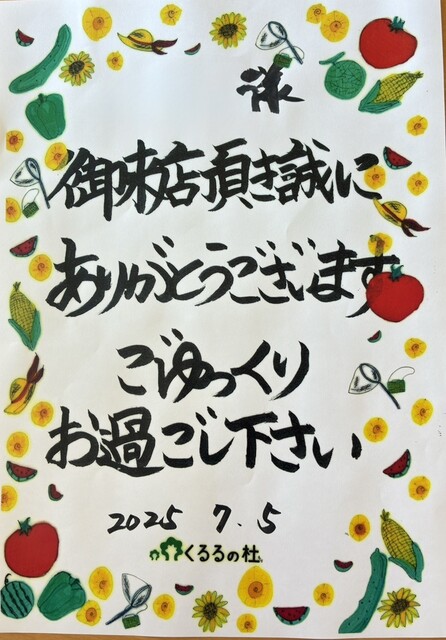 御来店頂き誠に
ありがとうございます
ごゆっくり
お過ごし下さい
2025 7.5
くるるの杜